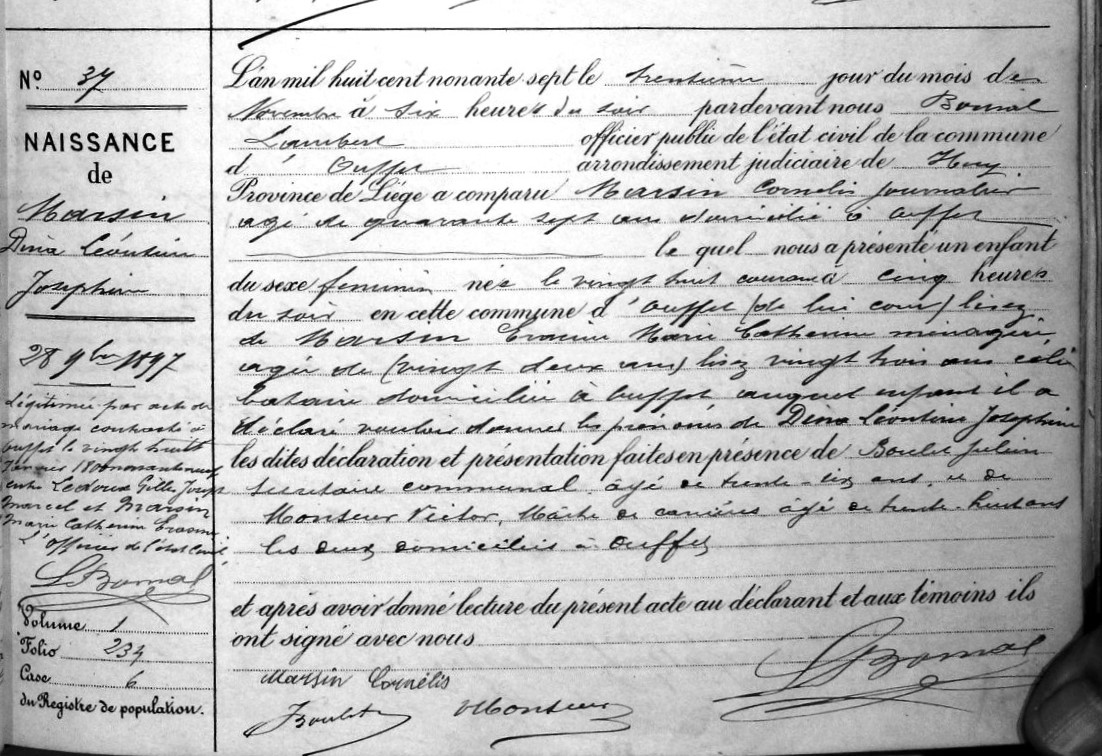 N° 37
NAISSANCE
de
Marsin
Dina Léontine
Joséphine
28 9bre 1897
Légitimée par acte de
mariage contracté à
Ouffet le vingt huit
Janvier 1800 nonante neuf
entre Ledoux Gille Joseph
Marcel et Marsin
Marie Catherine Erasmie
L'Officier de l'état civil,
LBomal
Volume 1
Folio 234
Case 6
du Registre de population.
L'an mil huit cent nonante sept le trentième jour du mois de
Novembre à six heures du soir pardevant nous Bomal
Lambert officier public de l'état civil de la commune
d'Ouffet arrondissement judiciaire de Huy
Province de Liége a comparu Marsin Cornélis journalier
agé de quarante sept ans domicilié à Ouffet
le quel nous a présenté un enfant
du sexe feminin née le vingt huit courant à cinq heures
du soir en cette commune d'Ouffet (de lui cour) lisez
de Marsin Erasmie Marie Catherine ménagère
agée de (vingt deux ans) lisez vingt trois ans céli
bataire domiciliée à Ouffet auquel enfant il a
déclaré vouloir donner les prénoms de Dina Léontine Joséphine
les dites déclaration et présentation faites en présence de Boulet Julien
Secrétaire communal, âgé de trente-six ans, et de
Monseur Victor, Maître de carrières âgé de trente-huit ans
les deux domiciliés à Ouffet
et après avoir donné lecture du présent acte au déclarant et aux témoins ils
ont signé avec nous
Marsin Cornélis
LBomal
JBoulet
VMonseur